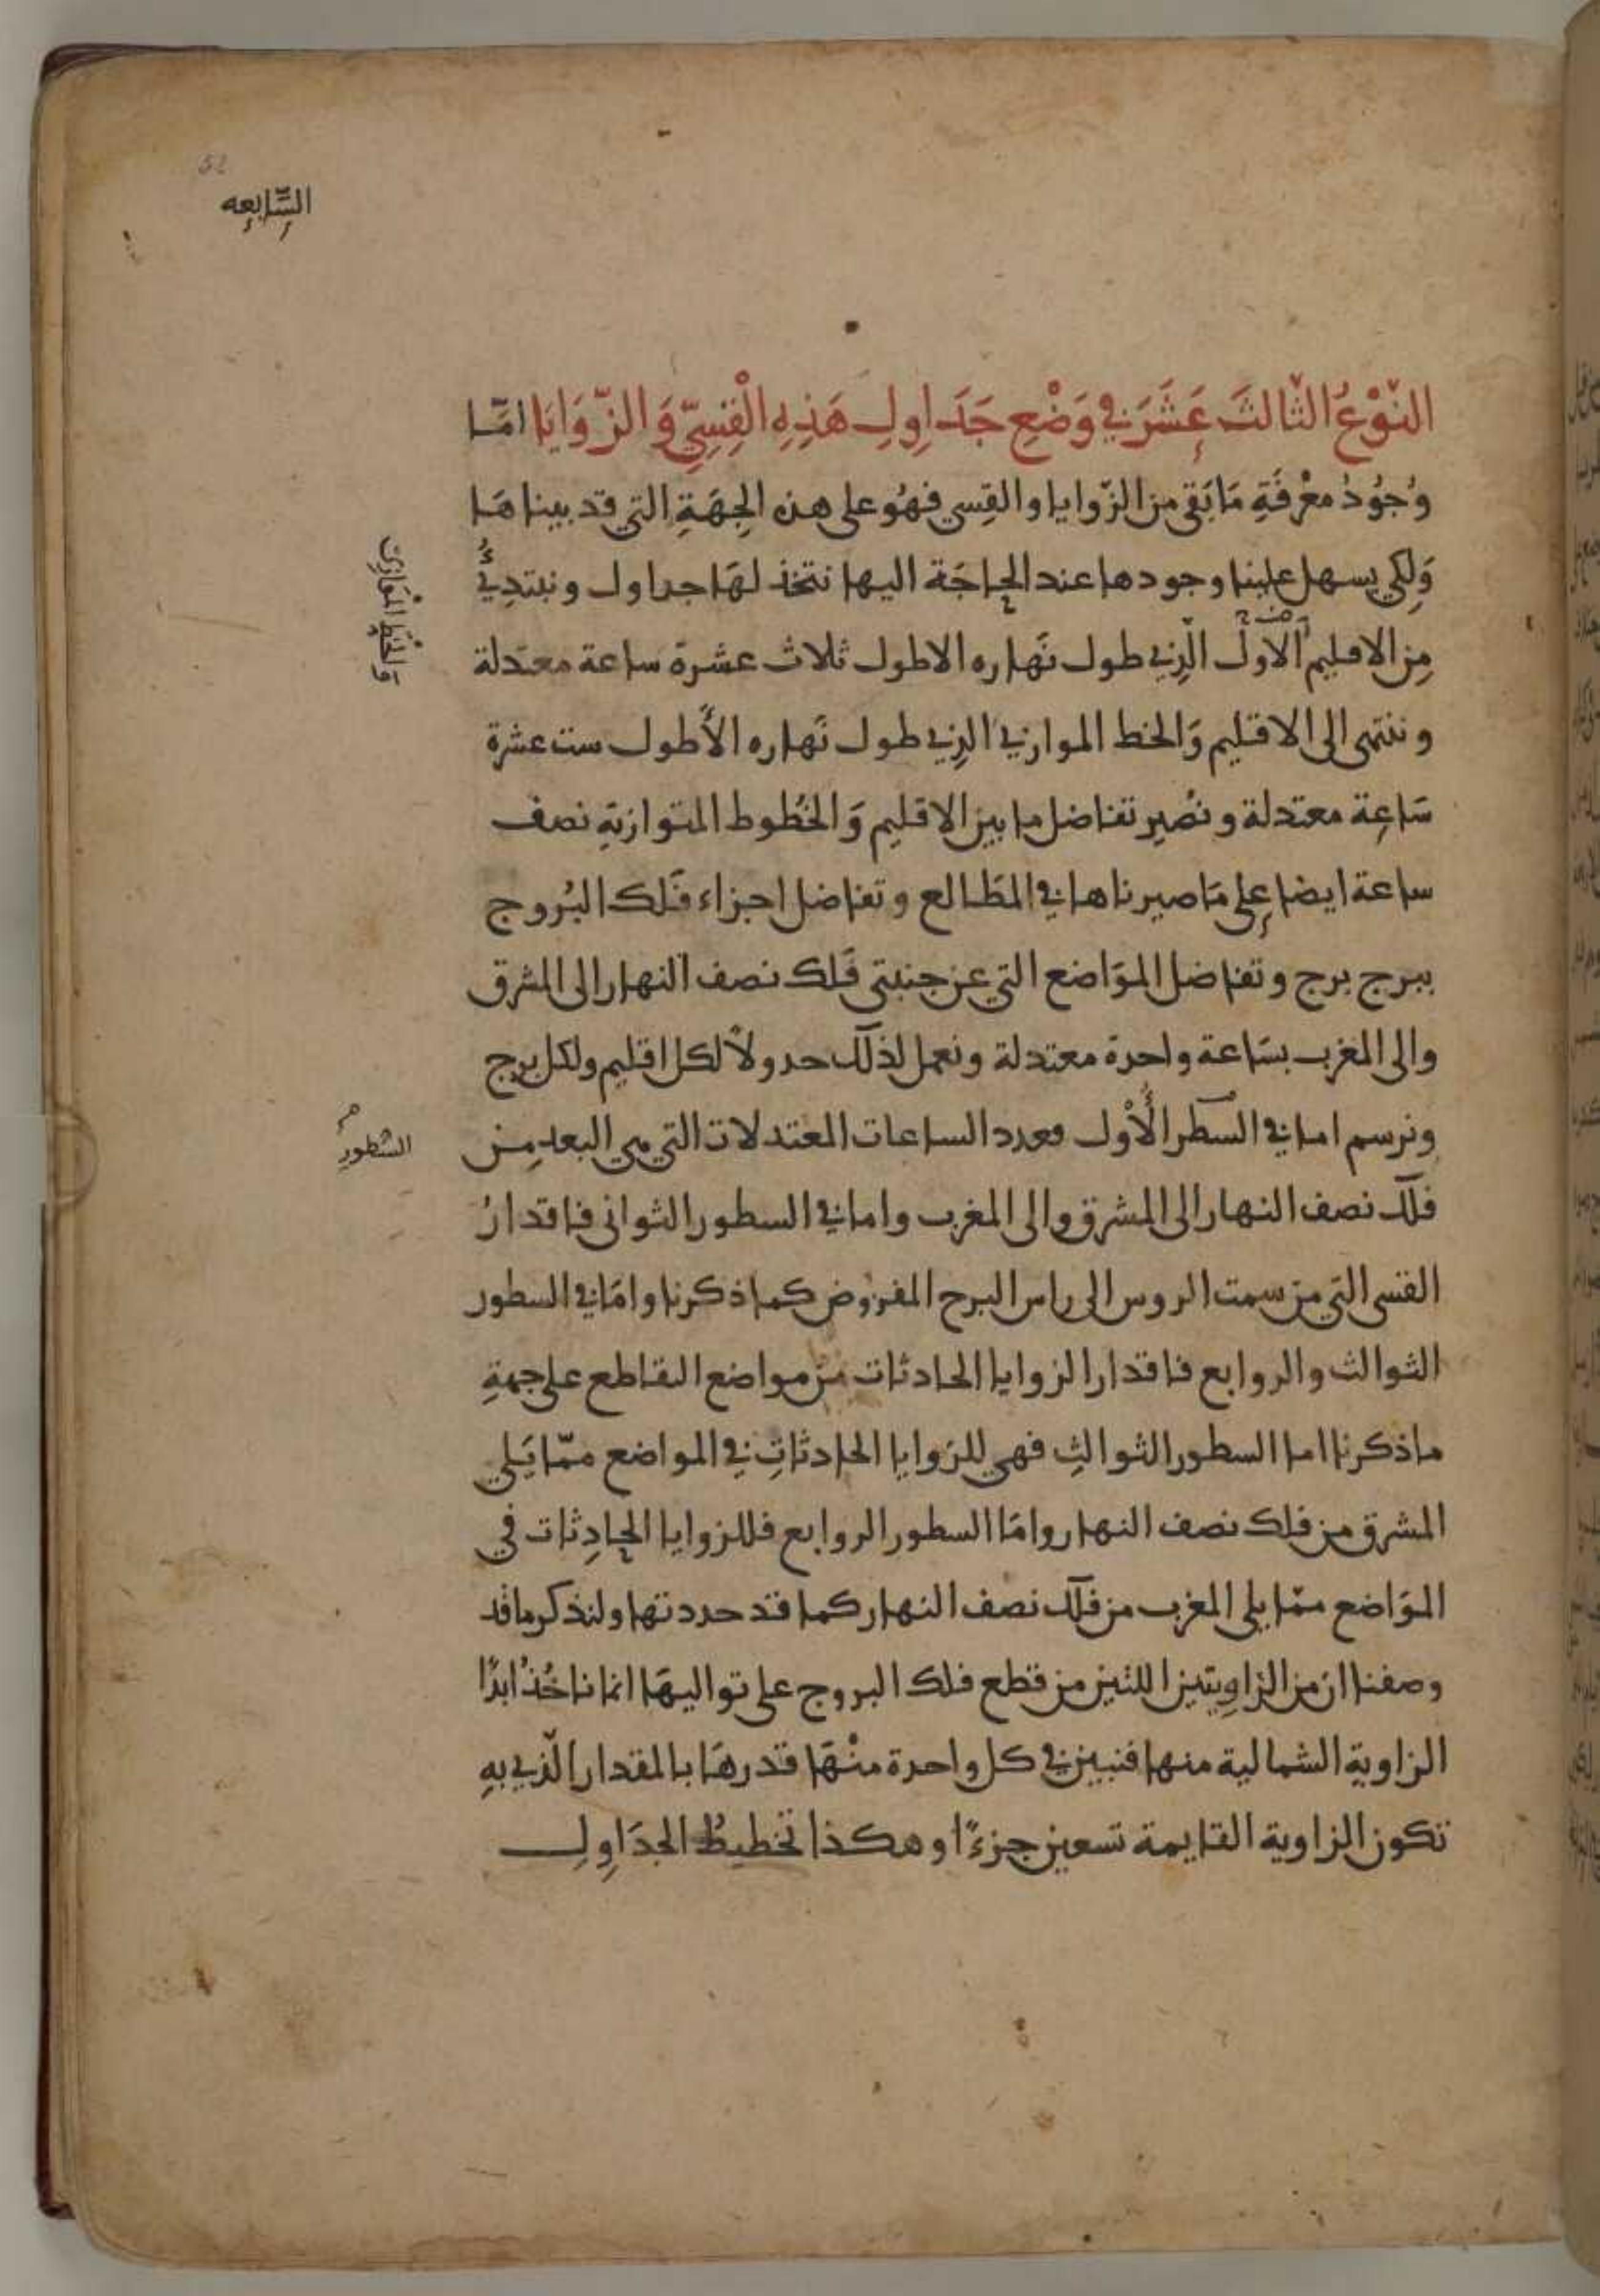 52
السَّابعه
النّوْعُ الثّالثَ عَشَرَ في وَضْعِ جَدَاوِلِ هَذِهِ الْقِسِيّ وَالزّوَايَا امّا
وُجُودُ معْرفَةِ مَا بَقي من الزّوايا والقِسي فهُو على هذه الجِهَةِ التي قد بيناهَا
وَلِكي يسهل علينا وجودها عند الحاجَة اليها نتخذ لهَا جداول ونبتدِيُ
من الاقليم الأول الّذي طول نَهاره الاطول ثلاث عشرة ساعة معتدلة
والخطِّ المُوَازِي
وننتهى الى الاقليم وَالخط الموازي الذي طول نَهاره الأَطول ست عشرة
سَاعِة معتدلة ونُصيِر تفاضل ما بين الاقليم وَالخُطوط المتوازيةِ نصف
ساعة ايضا على مَا صيرناها في المطَالع وتفاضل اجزاء فَلك البُروج
ببرج برج وتفاضل الموَاضع التي عن جنبتي فَلك نصف النهار الى المشرق
والى المغرب بسَاعة واحدة معتدلة ونعمل لذلك جدولاً لكل اقليم ولكل برج
ونرسم اما في السطر الأَوْل فعدد الساعات المعتدلات التي هي البعد مِن
السُطورِ
فلك نصف النهار الى المشرق والى المغرب واما في السطور الثواني فاقدارُ
القسى التي من سمت الروس الى راس البرج المفروض كما ذكرنا وامَا في السطور
الثوالث والروابع فاقدار الزوايا الحادثات من مواضع التقاطع على جهةِ
ما ذكرنا اما السطور الثوالثِ فهي للزوايا الحادثاتِ في المواضع ممّا يَلي
المشرق من فلك نصف النهار وامَا السطور الروابع فللزوايا الحادِثات في
الموَاضع ممّا يلي المغرب من فلك نصف النهار كما قد حددتها ولنذكر ما قد
وصفنا ان من الزاوِيتين اللتين من قطع فلك البروج على تواليهَا انما ناخُذُ ابدًا
الزاوية الشمالية منها فنبين في كل واحدة منْهَا قدرهَا بالمقدار الّذي بهِ
تكون الزاوية القايمة تسعين جزءًا وهكذا تخطيطُ الجدَاوِلِ